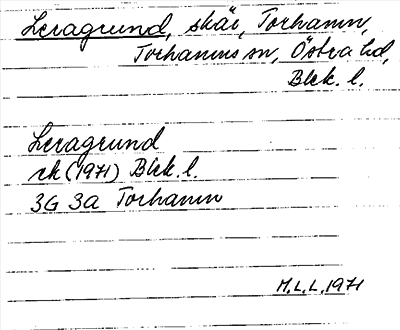 Leragrund, skär, Torhamn,
Torhamns sn, Östra hd,
Blek. l.
Leragrund
rk (1971) Blek. l.
3G 3a Torhamn
M.L.L. 1971